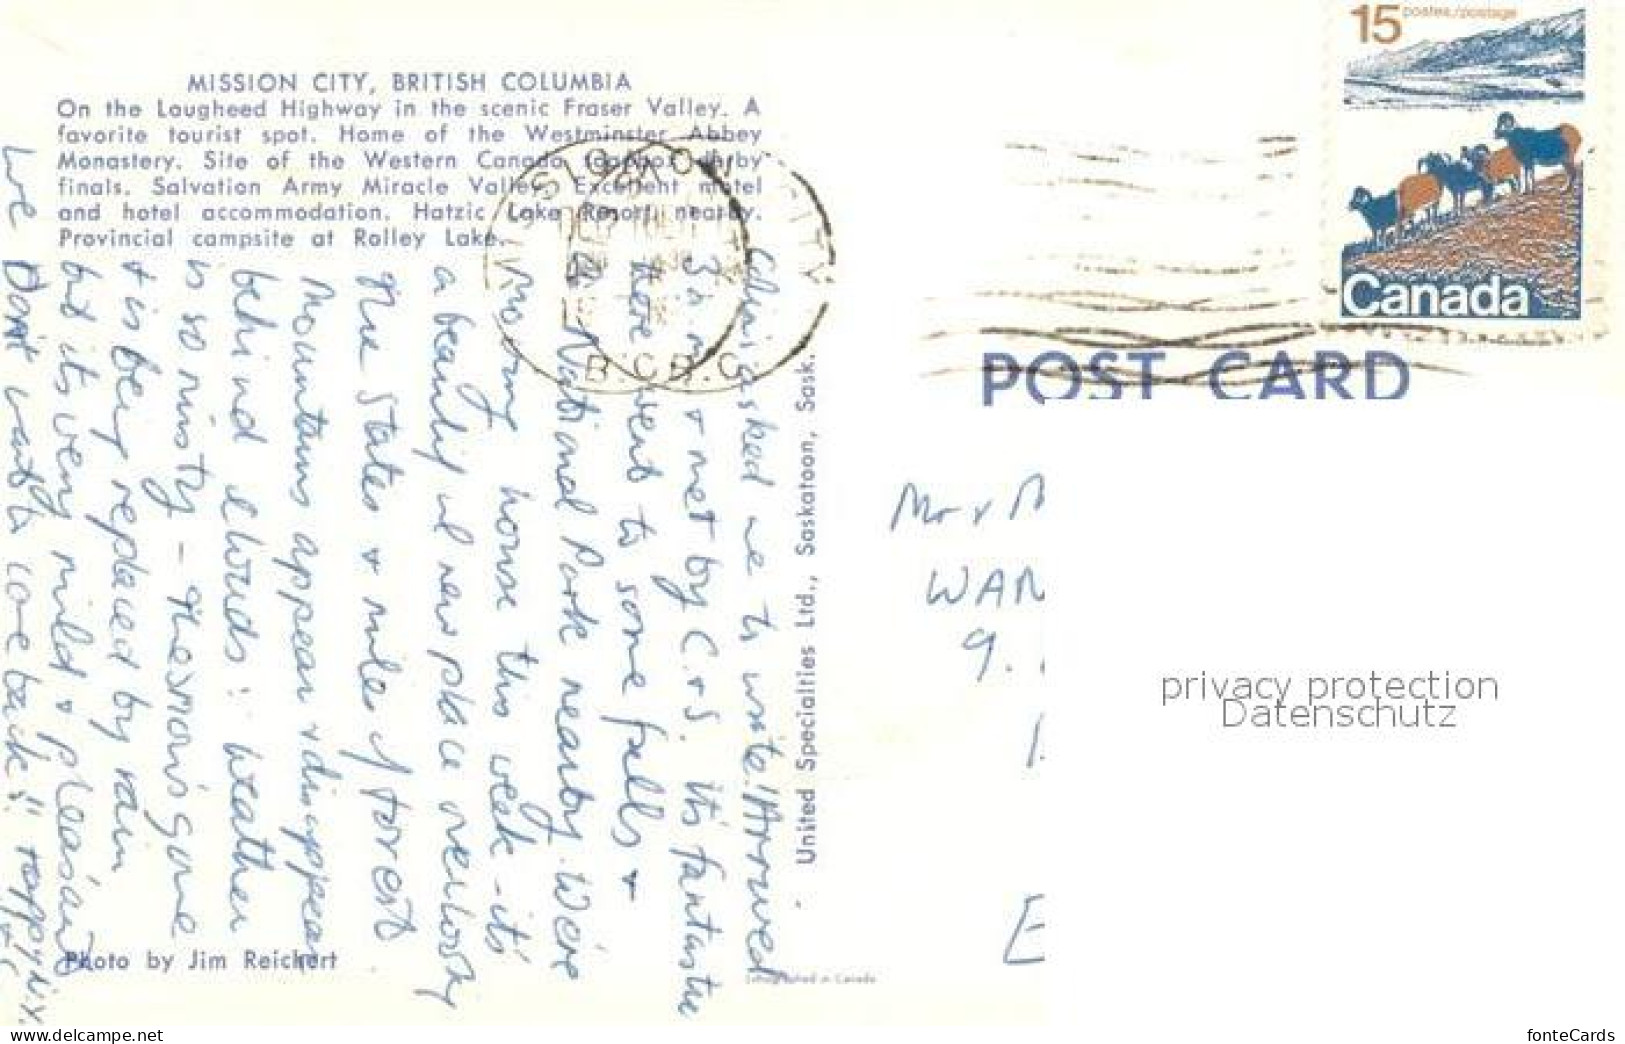 MISSION CITY, BRITISH COLUMBIA
On the Lougheed Highway in the scenic Fraser Valley. A
favorite tourist spot. Home of the Westminster Abbey
Monastery. Site of the Western Canada soapbox derby
finals. Salvation Army Miracle Valley. Excellent motel
and hotel accommodation. Hatzic Lake Resort, nearby.
Provincial campsite at Rolley Lake.
asked me to write! Arrived
& met by C. & S. Its fantastic
here went to some falls &
National Park nearby. We're
moving house this week - it's
a beautiful new place overlooking
the States & miles of forest
Mountains appear & disappear
behind clouds: weather
is so misty - the snow's gone
& is being replaced by rain
but its very mild & pleasant
We Don't want to come back!!
Photo by Jim Reichert
United Specialties Ltd., Saskatoon, Sask.
Lithographed in Canada
MISSION CITY
B.C. B.C.
15 postes/postage
Canada
POST CARD
Mr & M
WAR
9.
E
privacy protection
Datenschutz
www.delcampe.net
fonteCards